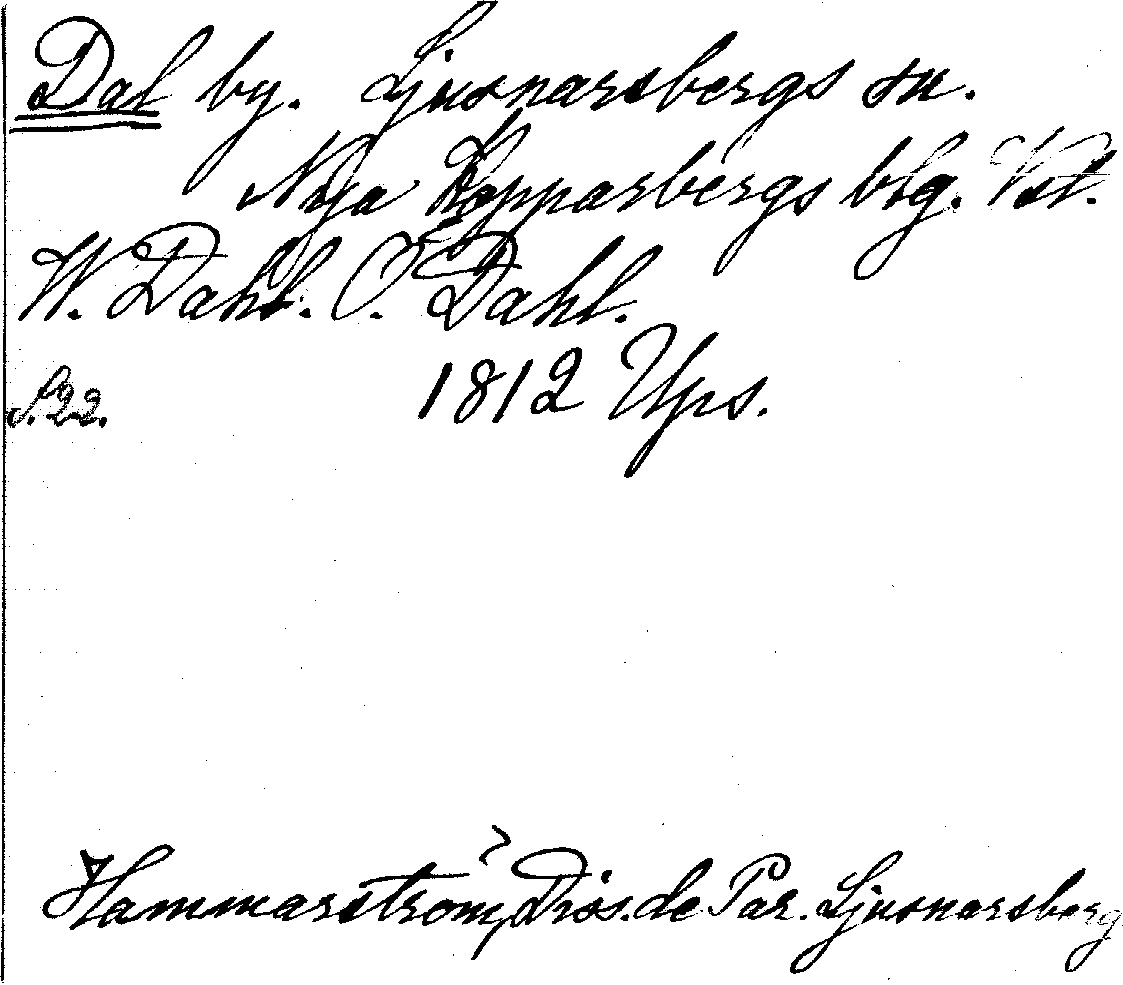 Dal by. Ljusnarsbergs sn.
Nya Kopparbergs blg. Vstl.
W. Dahl. Ö. Dahl.
S. 22. 1812 Ups.
Hammarström, Diss. de Par. Ljusnarsberg